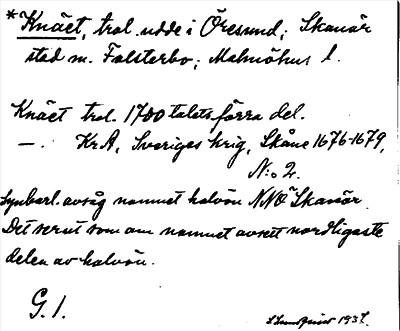 *Knäet, trol. udde i Öresund; Skanör
stad m. Falsterbo; Malmöhus l.
Knäet trol. 1700 talets förra del.
—. KrA, Sveriges krig, Skåne 1676-1679,
N:o 2.
Synbarl. avsåg namnet halvön NNO Skanör.
Det serut som om namnet avsett nordligaste
delen av halvön.
G. 1.
1937.